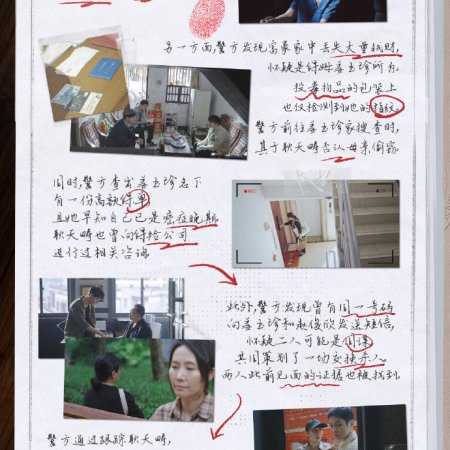 另一方面,警方发现富豪家中丢失大量钱财,
怀疑是保姆姜玉珍所为。
投毒物品的包装上
也仅检测到她的指纹
警方前往姜玉珍家搜查时,
其子耿天畴否认母亲偷窃
同时,警方查出姜玉珍名下
有一份高额保单
且她早知自己已是癌症晚期
耿天畴也曾向保险公司
进行过相关咨询
REC
此外,警方发现曾有同一号码
向姜玉珍和赵俊欣发送短信,
怀疑二人可能是同谋
共同策划了一切交换杀人
两人此前见面的证据也被找到.
警方通过跟踪耿天畴,